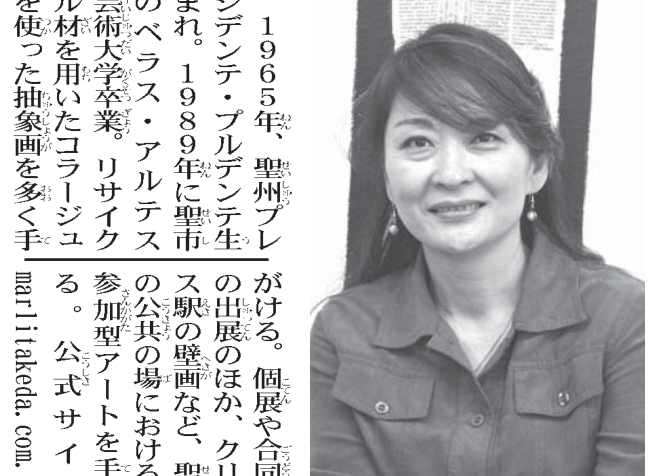 １９６５年、聖州プレ
ジデンテ・プルデンテ生
まれ。１９８９年に聖市
のベラス・アルテス
芸術大学卒業。リサイク
ル材を用いたコラージュ
を使った抽象画を多く手
がける。個展や合同
の出展のほか、クリ
ス駅の壁画など、聖
の公共の場における
参加型アートを手
る。公式サイ
marlitakeda.com.